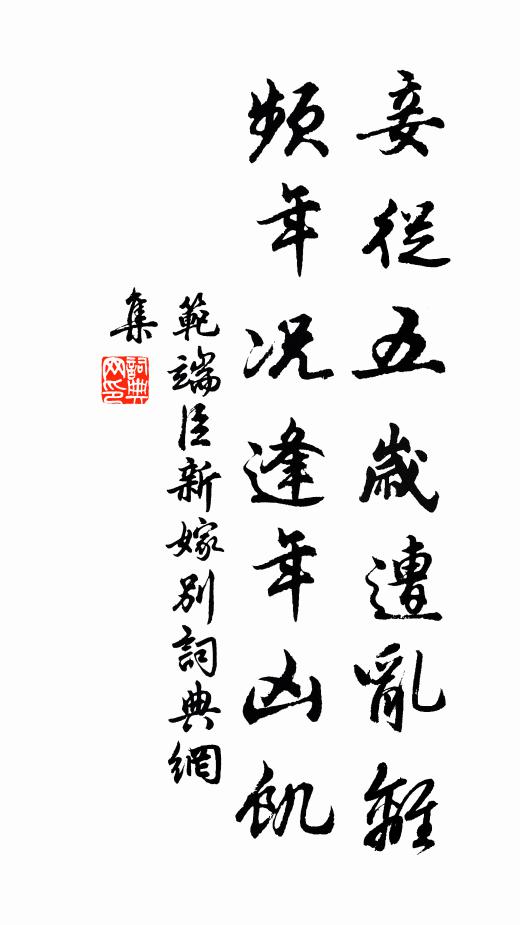 妾從五歲遭亂離
頻年況逢年凶飢
範端臣新嫁別詞典網
集
詞典網印